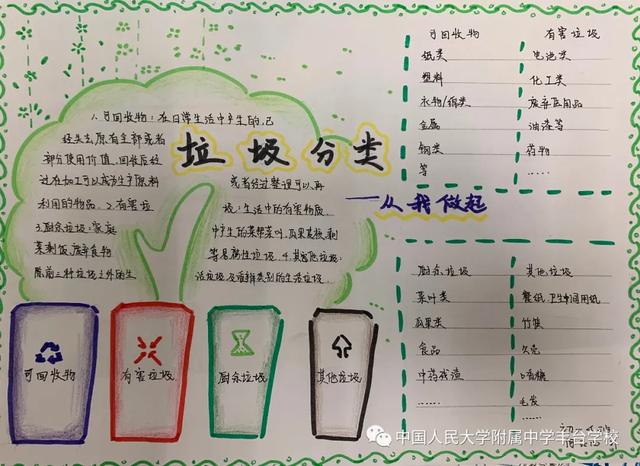 垃圾分类
——从我做起
1.可回收物:在日常生活中产生的,已
经失去原有全部或者
部分使用价值,回收后经
过在加工可以成为生产原料
利用的物品.2.有害垃
3.厨余垃圾:家庭
菜剩饭,废弃食物
除前三种垃圾之外的生
或者经过整理可以再
圾:生活中的有害物质.
中产生的菜帮菜叶,瓜果
等易腐性垃圾.4.其他垃圾:
活垃圾及难辨类别的生活垃圾.
可回收物
有害垃圾
厨余垃圾
其他垃圾
可回收物 有害垃圾
纸类 电池类
塑料 化工类
衣物/棉类 废弃医用品
金属 油漆等
钢类 药物
等 ......
厨余垃圾 其他垃圾
菜叶类 餐纸.卫生间用纸
瓜果类 竹筷
食品
中药残渣 口香糖
...... 毛发
......
中国人民大学附属中学丰台学校